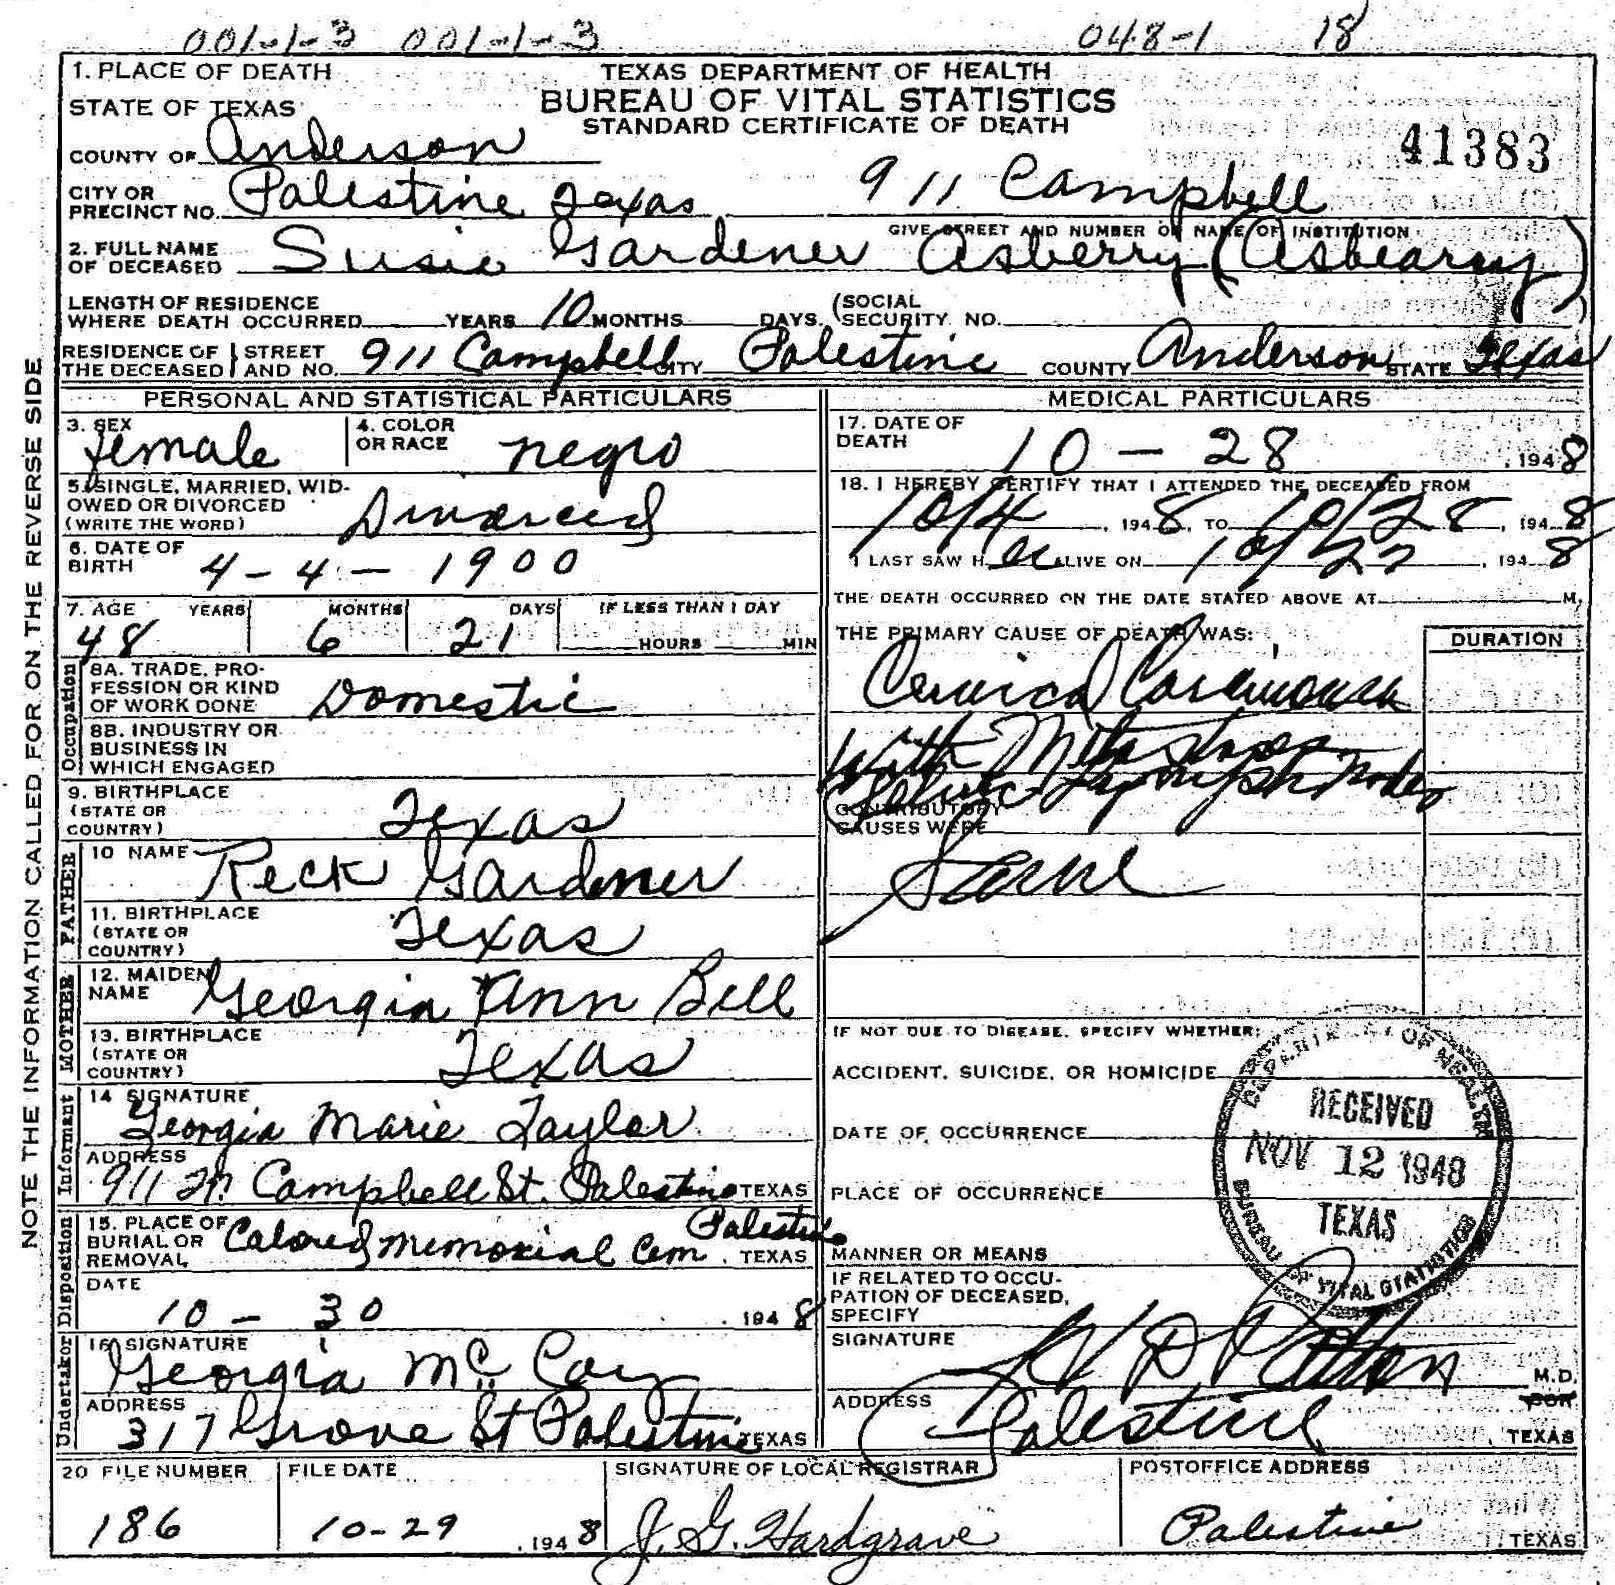 001-1-3 001-1-3 048-1 18
1. PLACE OF DEATH
STATE OF TEXAS
TEXAS DEPARTMENT OF HEALTH
BUREAU OF VITAL STATISTICS
STANDARD CERTIFICATE OF DEATH
41383
COUNTY OF Anderson
CITY OR PRECINCT NO. Palestine Texas 911 Campbell
GIVE STREET AND NUMBER OR NAME OF INSTITUTION
2. FULL NAME OF DECEASED Susie Gardener Asberry (Asbearry)
LENGTH OF RESIDENCE WHERE DEATH OCCURRED YEARS 10 MONTHS DAYS. (SOCIAL SECURITY NO.
RESIDENCE OF THE DECEASED STREET AND NO. 911 Campbell CITY Palestine COUNTY Anderson STATE Texas
NOTE THE INFORMATION CALLED FOR ON THE REVERSE SIDE
PERSONAL AND STATISTICAL PARTICULARS
3. SEX female
4. COLOR OR RACE negro
5. SINGLE, MARRIED, WIDOWED OR DIVORCED (WRITE THE WORD) Divorced
6. DATE OF BIRTH 4-4-1900
7. AGE YEARS MONTHS DAYS IF LESS THAN 1 DAY
48 6 21 HOURS MIN
Occupation
8A. TRADE, PROFESSION OR KIND OF WORK DONE Domestic
8B. INDUSTRY OR BUSINESS IN WHICH ENGAGED
9. BIRTHPLACE (STATE OR COUNTRY) Texas
FATHER
10 NAME Reck Gardener
11. BIRTHPLACE (STATE OR COUNTRY) Texas
MOTHER
12. MAIDEN NAME Georgia Ann Bell
13. BIRTHPLACE (STATE OR COUNTRY) Texas
Informant
14 SIGNATURE Georgia Marie Taylor
ADDRESS 911 N. Campbell St. Palestine TEXAS
Disposition
15. PLACE OF BURIAL OR REMOVAL Colored Memorial Cem Palestine, TEXAS
DATE 10-30, 1948
Undertaker
16 SIGNATURE Georgia McCoy
ADDRESS 317 Grove St Palestine TEXAS
MEDICAL PARTICULARS
17. DATE OF DEATH 10-28, 1948
18. I HEREBY CERTIFY THAT I ATTENDED THE DECEASED FROM
10/4, 1948, TO 10/28, 1948
I LAST SAW H er ALIVE ON 10/27, 1948
THE DEATH OCCURRED ON THE DATE STATED ABOVE AT M.
THE PRIMARY CAUSE OF DEATH WAS: DURATION
Cervical Carcinoma
With Metastases
Pelvic Lymph Nodes
CONTRIBUTORY CAUSES WERE
Same
IF NOT DUE TO DISEASE, SPECIFY WHETHER:
ACCIDENT, SUICIDE, OR HOMICIDE
DATE OF OCCURRENCE
PLACE OF OCCURRENCE
MANNER OR MEANS
IF RELATED TO OCCUPATION OF DECEASED, SPECIFY
DEPARTMENT OF HEALTH
RECEIVED
NOV 12 1948
TEXAS
BUREAU OF VITAL STATISTICS
SIGNATURE Patton M.D.
ADDRESS Palestine, TEXAS
20 FILE NUMBER FILE DATE SIGNATURE OF LOCAL REGISTRAR POSTOFFICE ADDRESS
186 10-29, 1948 J. G. Hardgrave Palestine, TEXAS